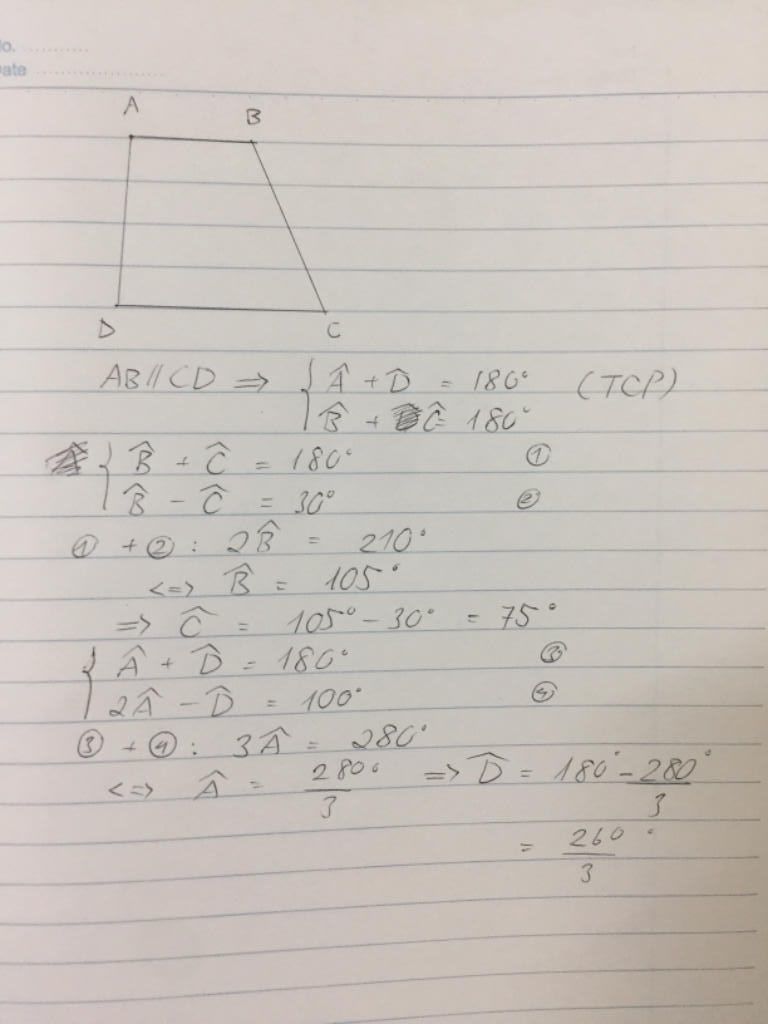 No. ............
Date ............
A
B
D
C
AB // CD => { Â + D̂ = 180° (TCP)
B̂ + Ĉ = 180°
{ B̂ + Ĉ = 180° ①
B̂ - Ĉ = 30° ②
① + ② : 2B̂ = 210°
<=> B̂ = 105°
=> Ĉ = 105° - 30° = 75°
{ Â + D̂ = 180° ③
2Â - D̂ = 100° ④
③ + ④ : 3Â = 280°
<=> Â = 280°/3 => D̂ = 180° - 280°/3
= 260°/3